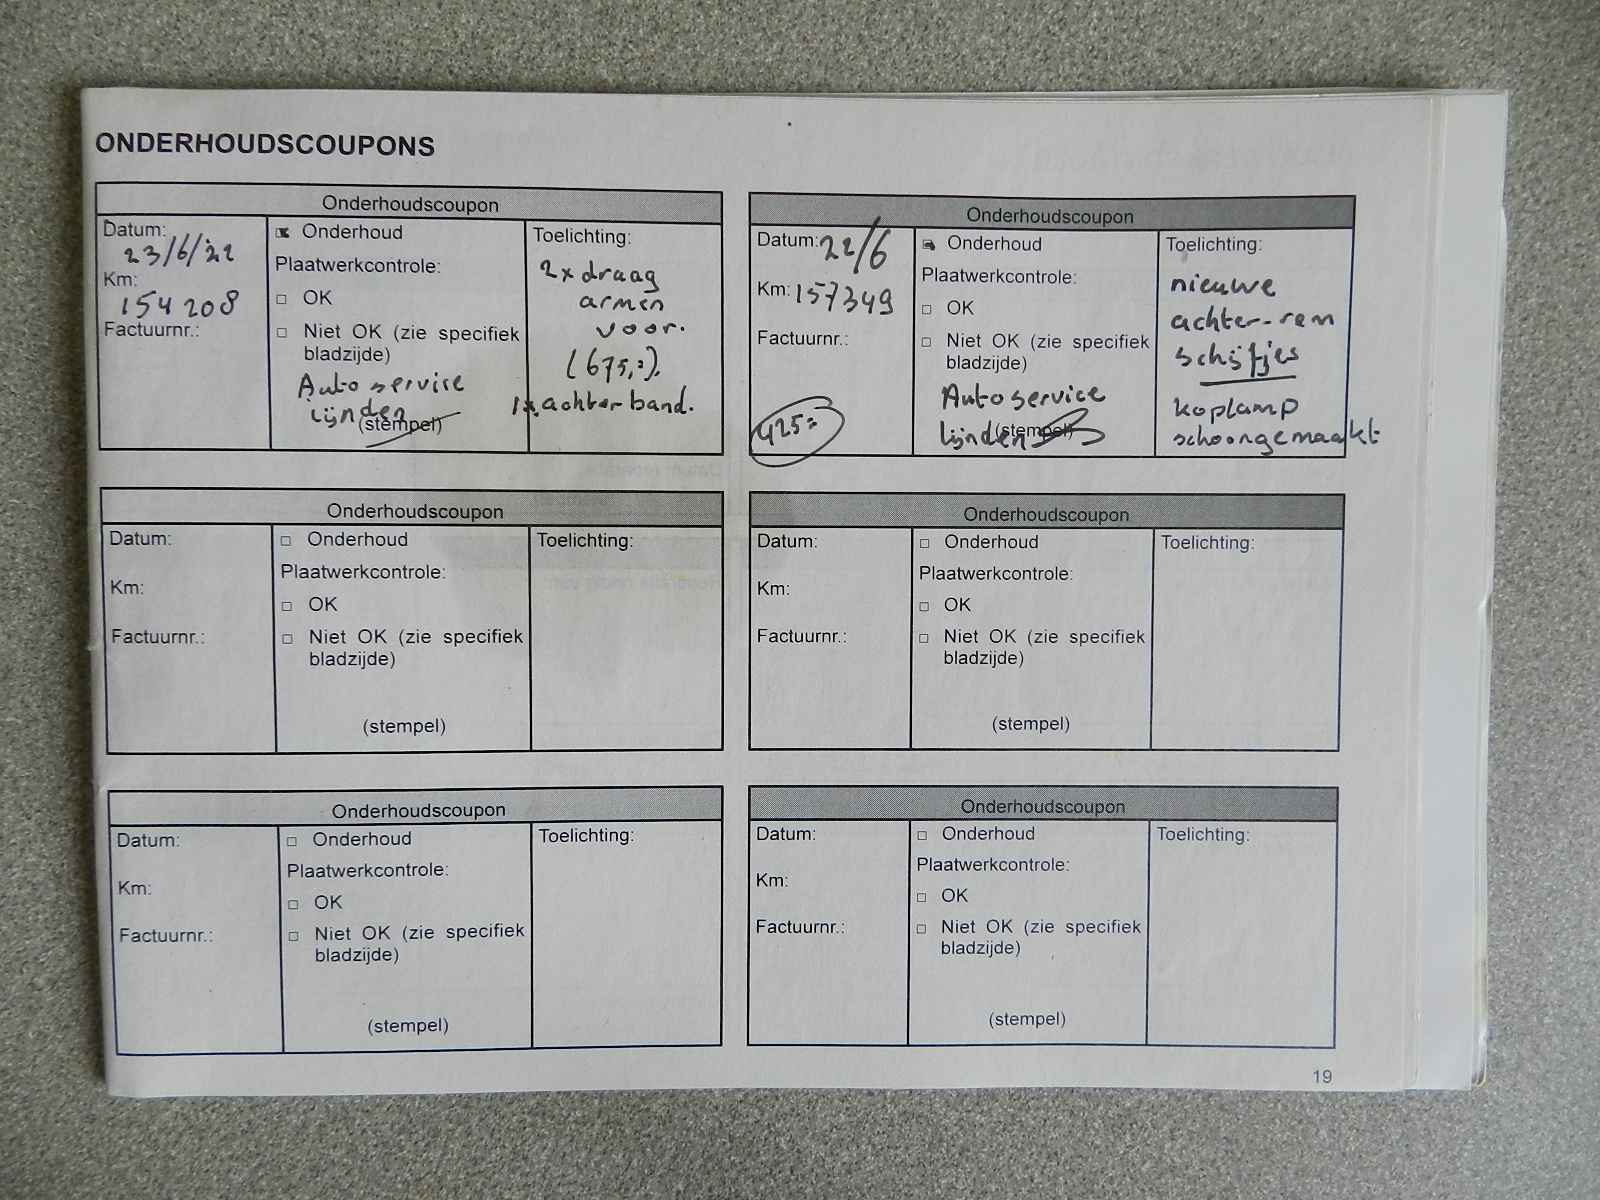 ONDERHOUDSCOUPONS
Onderhoudscoupon
Datum:
23/6/22
Km:
154208
Factuurnr.:
Onderhoud
Plaatwerkcontrole:
OK
Niet OK (zie specifiek
bladzijde)
Autoservice
Lijnden
(stempel)
Toelichting:
2x draag
armen
voor.
(675,=).
1x achterband.
Onderhoudscoupon
Datum: 22/6
Km: 157349
Factuurnr.:
425=
Onderhoud
Plaatwerkcontrole:
OK
Niet OK (zie specifiek
bladzijde)
Autoservice
Lijnden
(stempel)
Toelichting:
nieuwe
achter-rem
schijfjes
koplamp
schoongemaakt
Onderhoudscoupon
Datum:
Km:
Factuurnr.:
Onderhoud
Plaatwerkcontrole:
OK
Niet OK (zie specifiek
bladzijde)
(stempel)
Toelichting:
Onderhoudscoupon
Datum:
Km:
Factuurnr.:
Onderhoud
Plaatwerkcontrole:
OK
Niet OK (zie specifiek
bladzijde)
(stempel)
Toelichting:
Onderhoudscoupon
Datum:
Km:
Factuurnr.:
Onderhoud
Plaatwerkcontrole:
OK
Niet OK (zie specifiek
bladzijde)
(stempel)
Toelichting:
Onderhoudscoupon
Datum:
Km:
Factuurnr.:
Onderhoud
Plaatwerkcontrole:
OK
Niet OK (zie specifiek
bladzijde)
(stempel)
Toelichting:
19